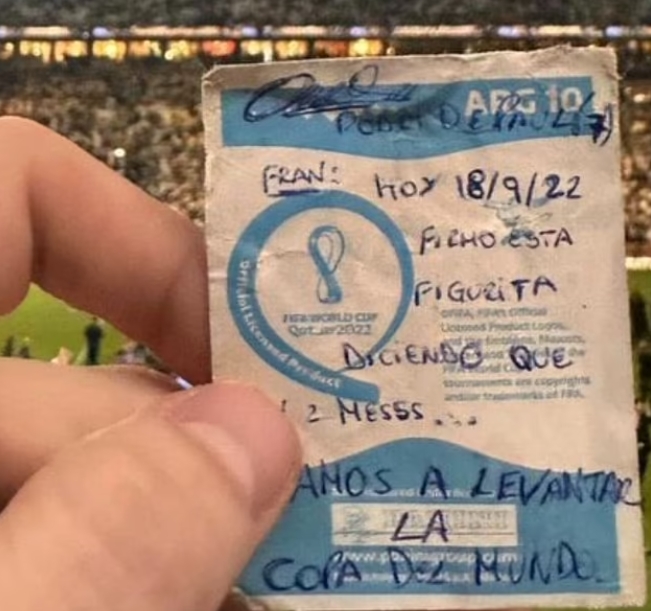 ARG 10
FRAN: HOY 18/9/22
FIRMO ESTA
FIGURITA
Official Licensed Product
FIFA WORLD CUP
Qatar2022
©FIFA, FIFA's Official
Licensed Product Logos,
and the Emblems, Mascots,
the
FIFA World Cup
tournaments are copyrights
and/or trademarks of FIFA.
DICIENDO QUE
2 MESES...
AMOS A LEVANTAR
LA
www.paninigroup.com
COPA DEL MUNDO